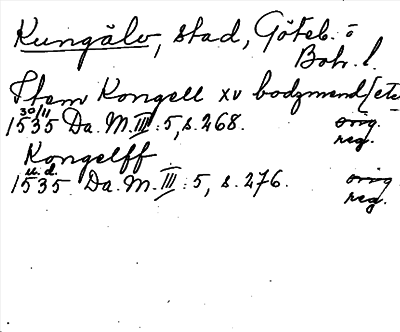 Kungälv, stad, Göteb. o
Boh. l.
Item Kongell xv bodzmend [etc
30/11
1535 Da. M. III : 5, s. 268. orig.
reg.
Kongelff
u. d.
1535. Da. M. III : 5, s. 276. orig.
reg.